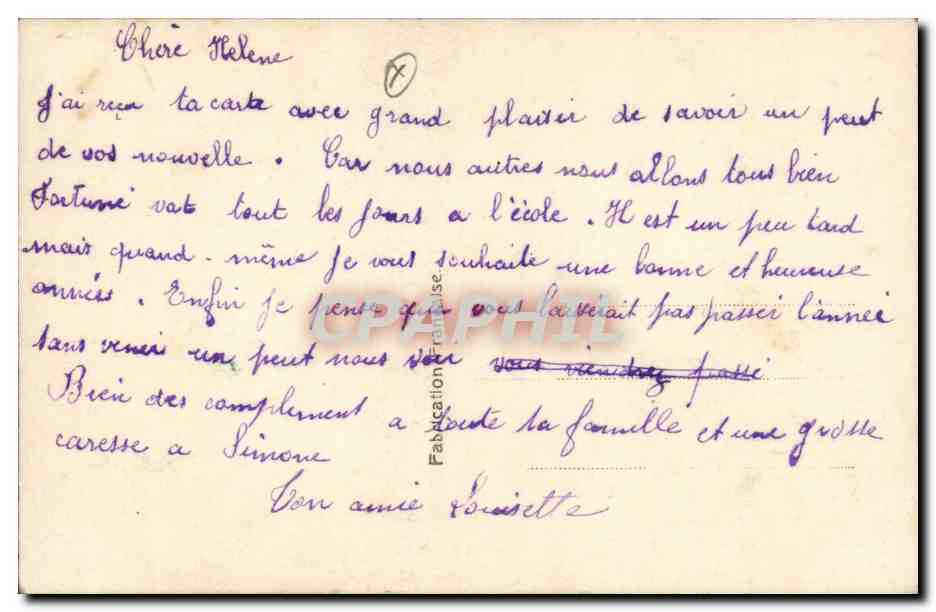 Chère Helene
J'ai reçu ta carte avec grand plaisir de savoir un peut
de vos nouvelle. Car nous autres nous allons tous bien
Fortuné vat tout les jours a l'école. Il est un peu tard
mais quand-même je vous souhaite une bonne et heureuse
années. Enfin je pense que vous laisserait pas passer l'année
sans venir un peut nous voir vous viendrez passé
Bien des compliment a toute ta famille et une grosse
caresse a Simone
Ton amie Louisette
Fabrication Française
CPAPHIL
X